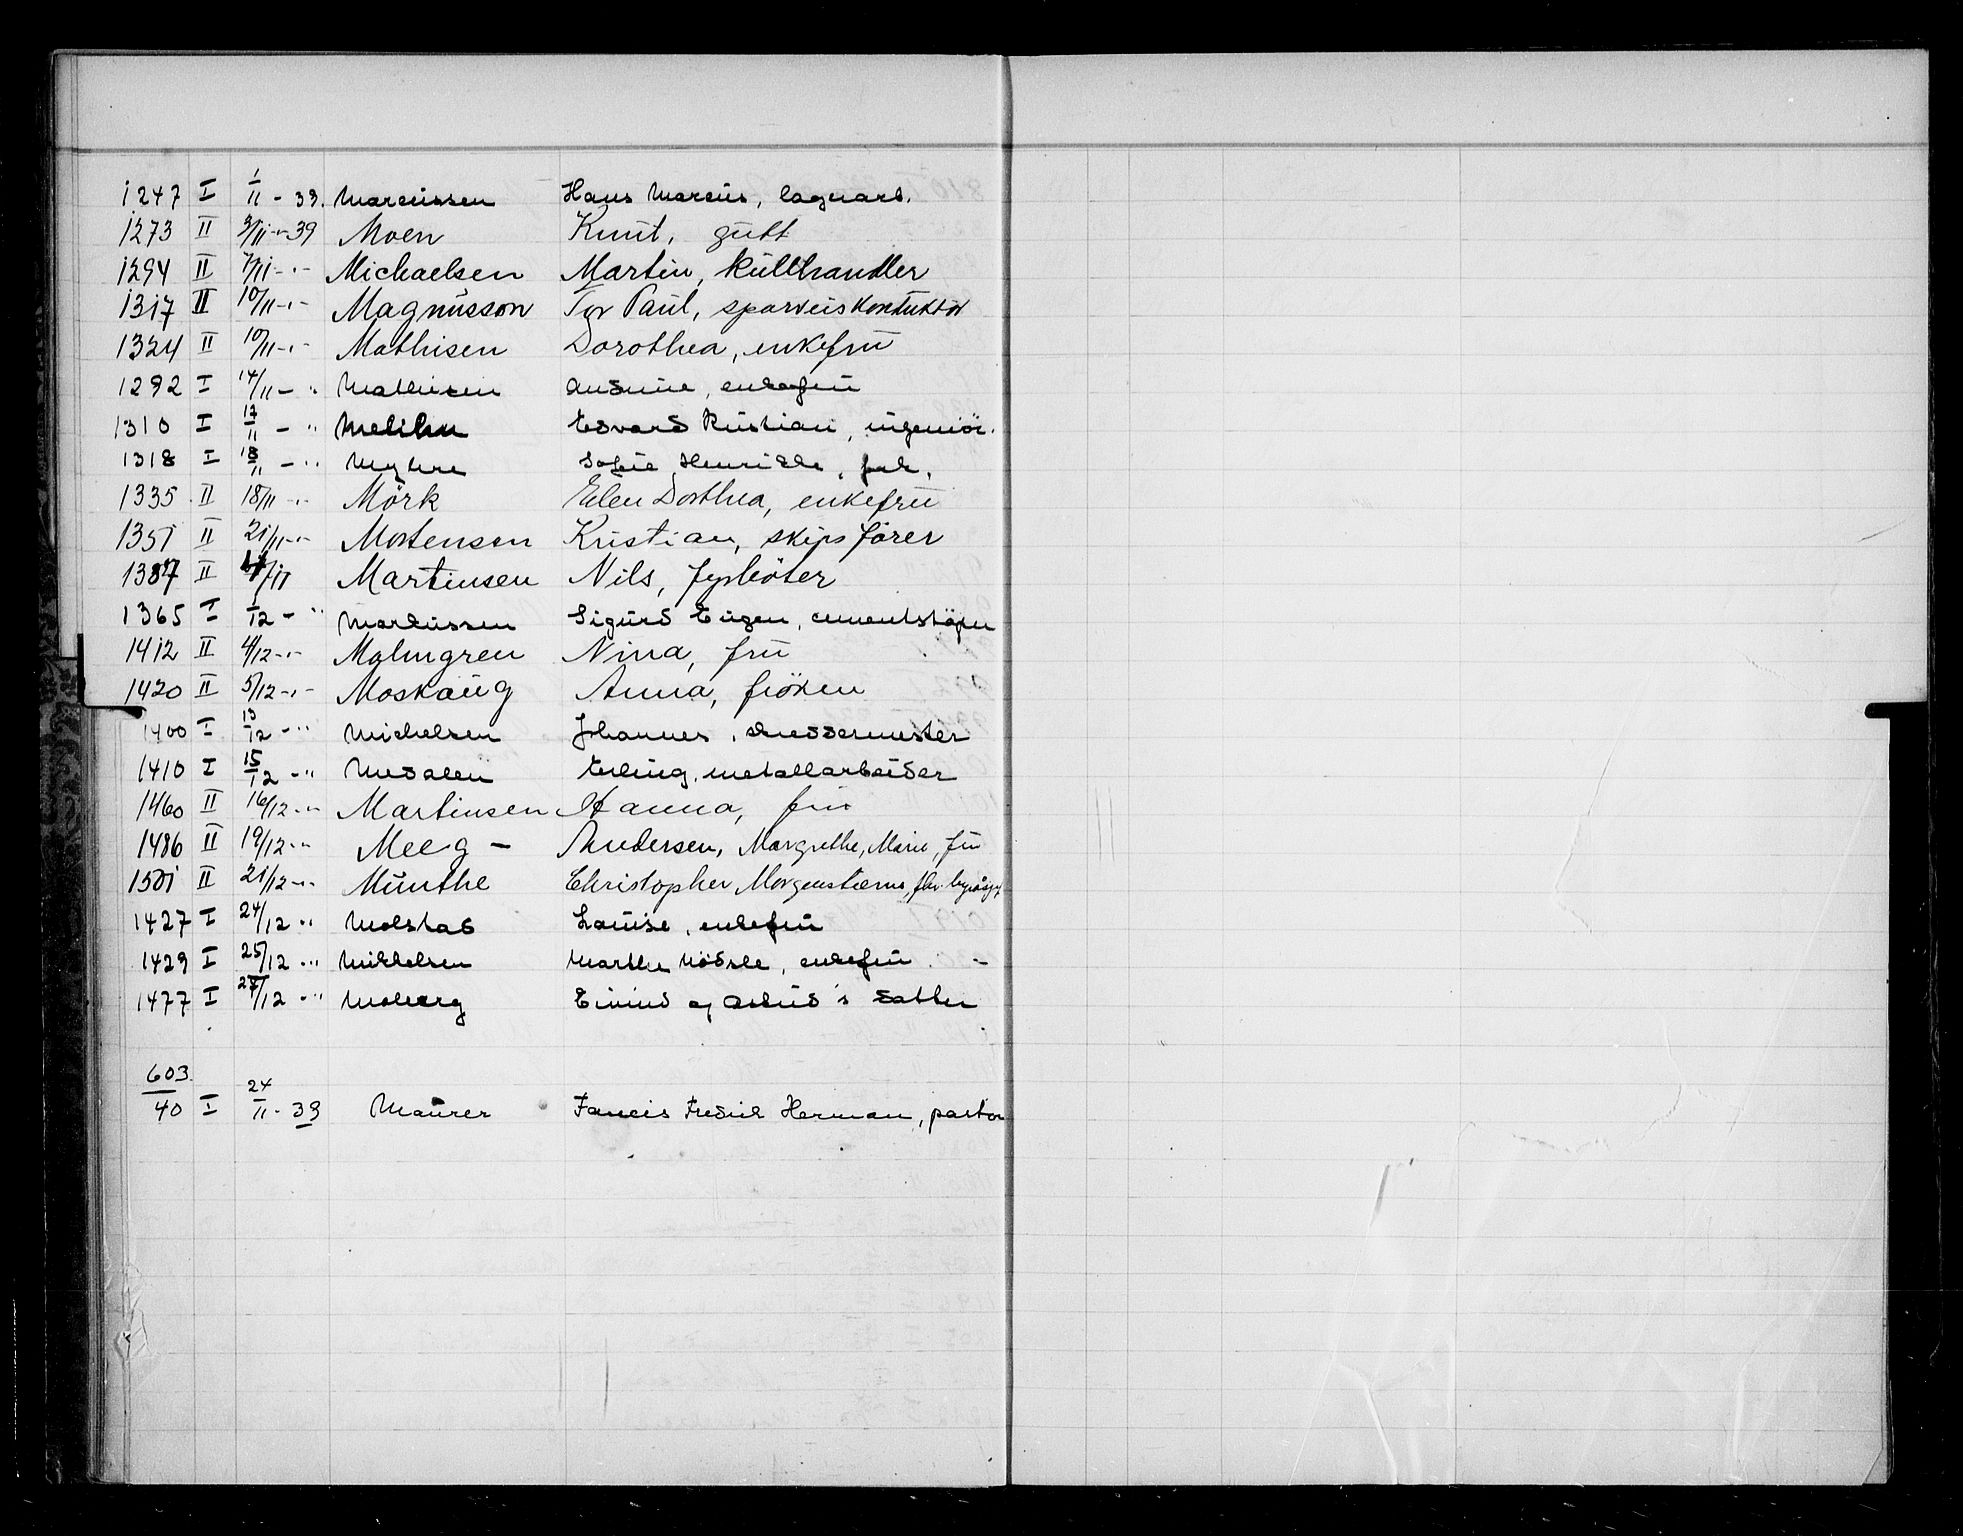 1247 I 1/11 - 39. Marcussen Hans Marcus, lagerarb.
1273 II 3/11 -"- 39 Moen Knut, gutt
1294 II 7/11 -"- Michaelsen Martin, kullhandler
1317 II 10/11 -"- Magnusson Tor Paul, sporveiskonduktør
1324 II 10/11 -"- Mathisen Dorothea, enkefru
1292 I 14/11 - " Mathisen enkefru
1310 I 17/11 - " Edvard Kristian, ingeniör.
1318 I 18/11 - " Myhre Sofie Henrikke, frk.
1335 II 18/11 -"- Mörk Elen Dorthea, enkefru
1351 II 21/11 -"- Mortensen Kristian, skipsförer
1387 II /11 Martinsen Nils, fyrböter
1365 I 1/12 - " Markussen Sigurd Eugen, cementstöper
1412 II 4/12 -"- Malmgren Nina, fru
1420 II 5/12 -"- Moskaug Anna, fröken
1400 I 13/12 - " Michelsen Johannes, skreddermester
1410 I 15/12 - " Medalen Erling, metallarbeider
1460 II 16/12 -"- Martinsen Hanna, fru
1486 II 19/12 -"- Meeg - Andersen, Margrethe, Marie, fru
1501 II 21/12 -"- Munthe Christopher Morgenstierne, fhv.
1427 I 24/12 " Molstad Louise, enkefru
1429 I 25/12 - " Mikkelsen Marthe enkefru
1477 I 27/12 - " Moberg Eivind og Astrid's datter
603/40 I 24/11 - 39 Maurer Francis Fredrik Herman, pastor